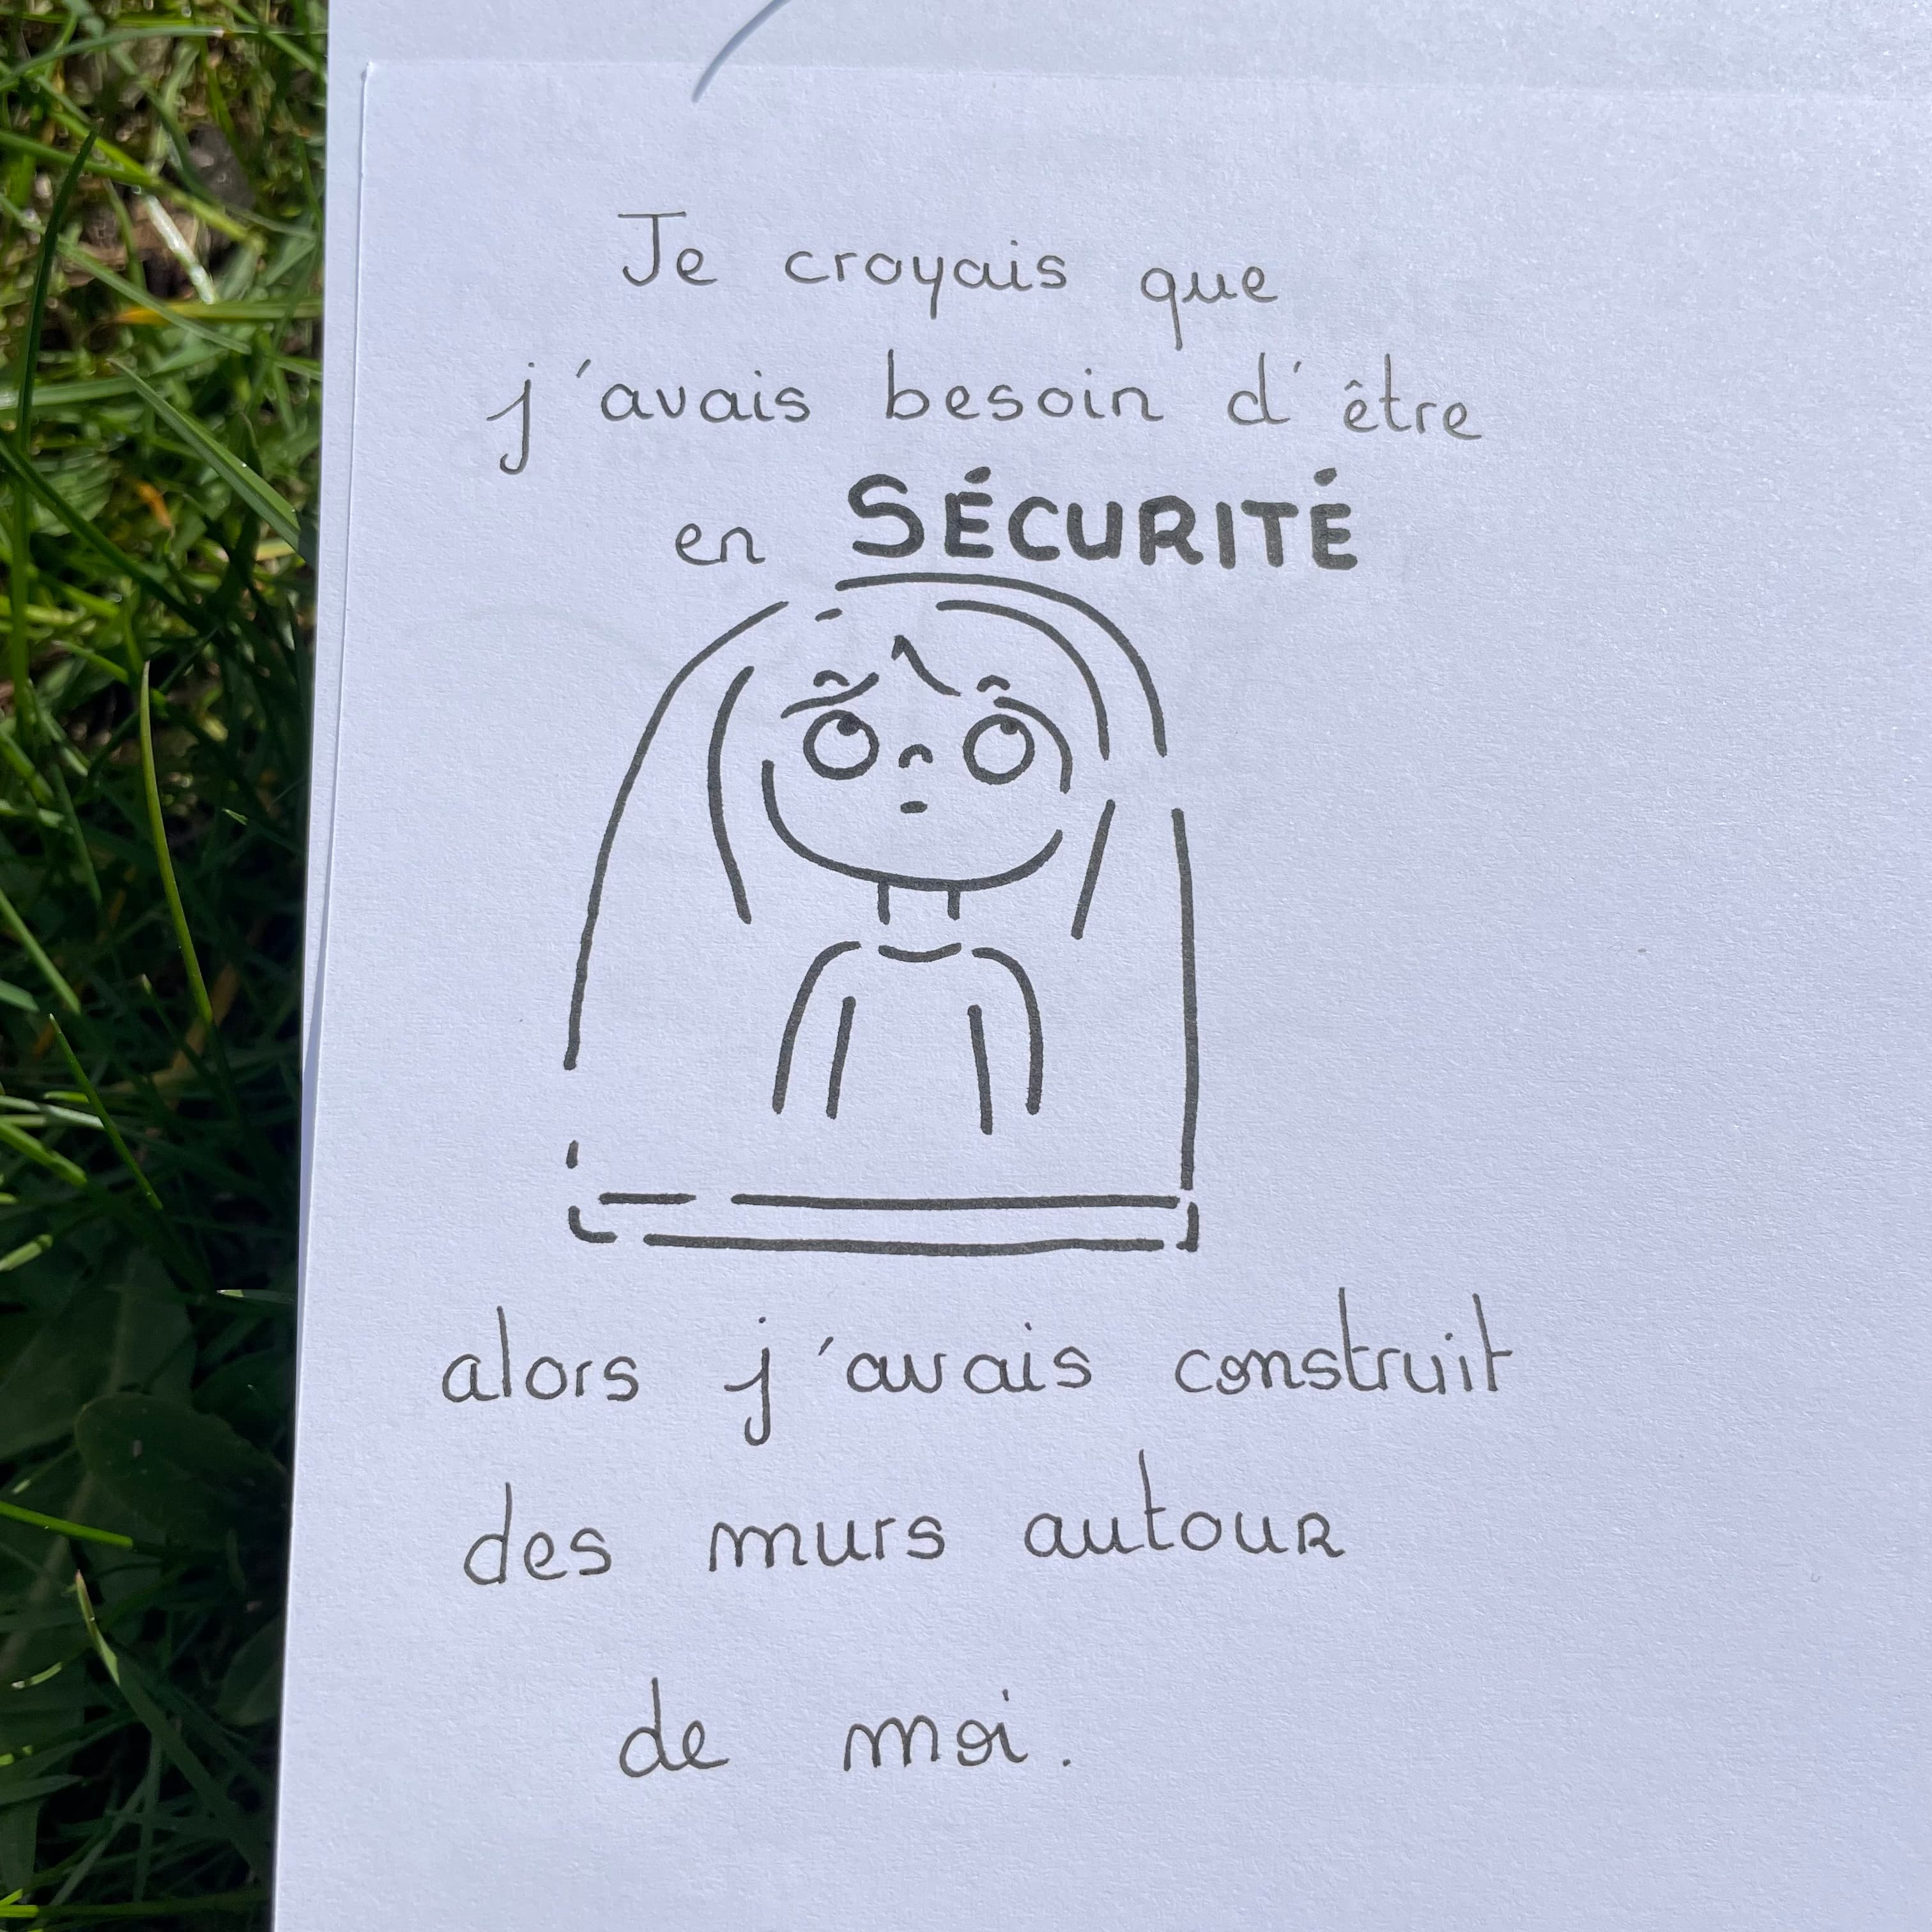 Je croyais que
j'avais besoin d'être
en SÉCURITÉ
alors j'avais construit
des murs autour
de moi.